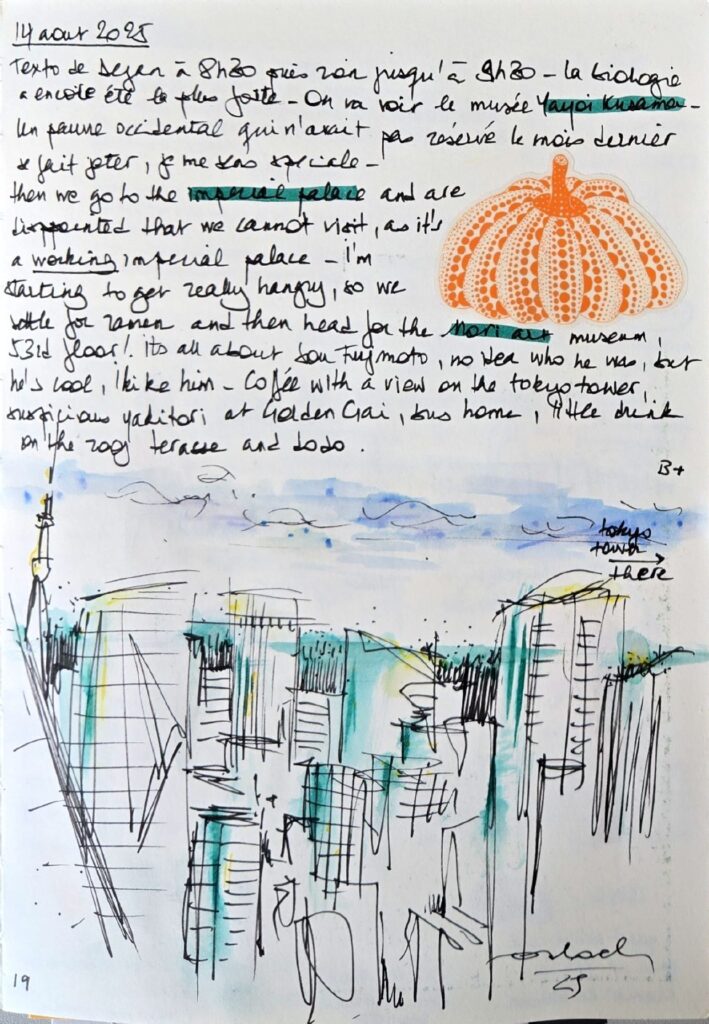 14 aout 2025
Texto de Dejan à 8h30 puis rien jusqu'à 9h30 - la biologie
a encore été la plus forte - On va voir le musée Yayoi Kusama -
Un pauvre occidental qui n'avait pas réservé le mois dernier
se fait jeter, je me sens spéciale -
then we go to the imperial palace and are
disappointed that we cannot visit, as it's
a working imperial palace - I'm
starting to get really hangry, so we
settle for ramen and then head for the Mori art museum,
53rd floor! its all about Sou Fujimoto, no idea who he was, but
he's cool, i like him - Coffee with a view on the tokyo tower,
suspicious yakitori at Golden Gai, bus home, little drink
on the roof terasse and dodo.
B+
tokyo
tower
there
19
25